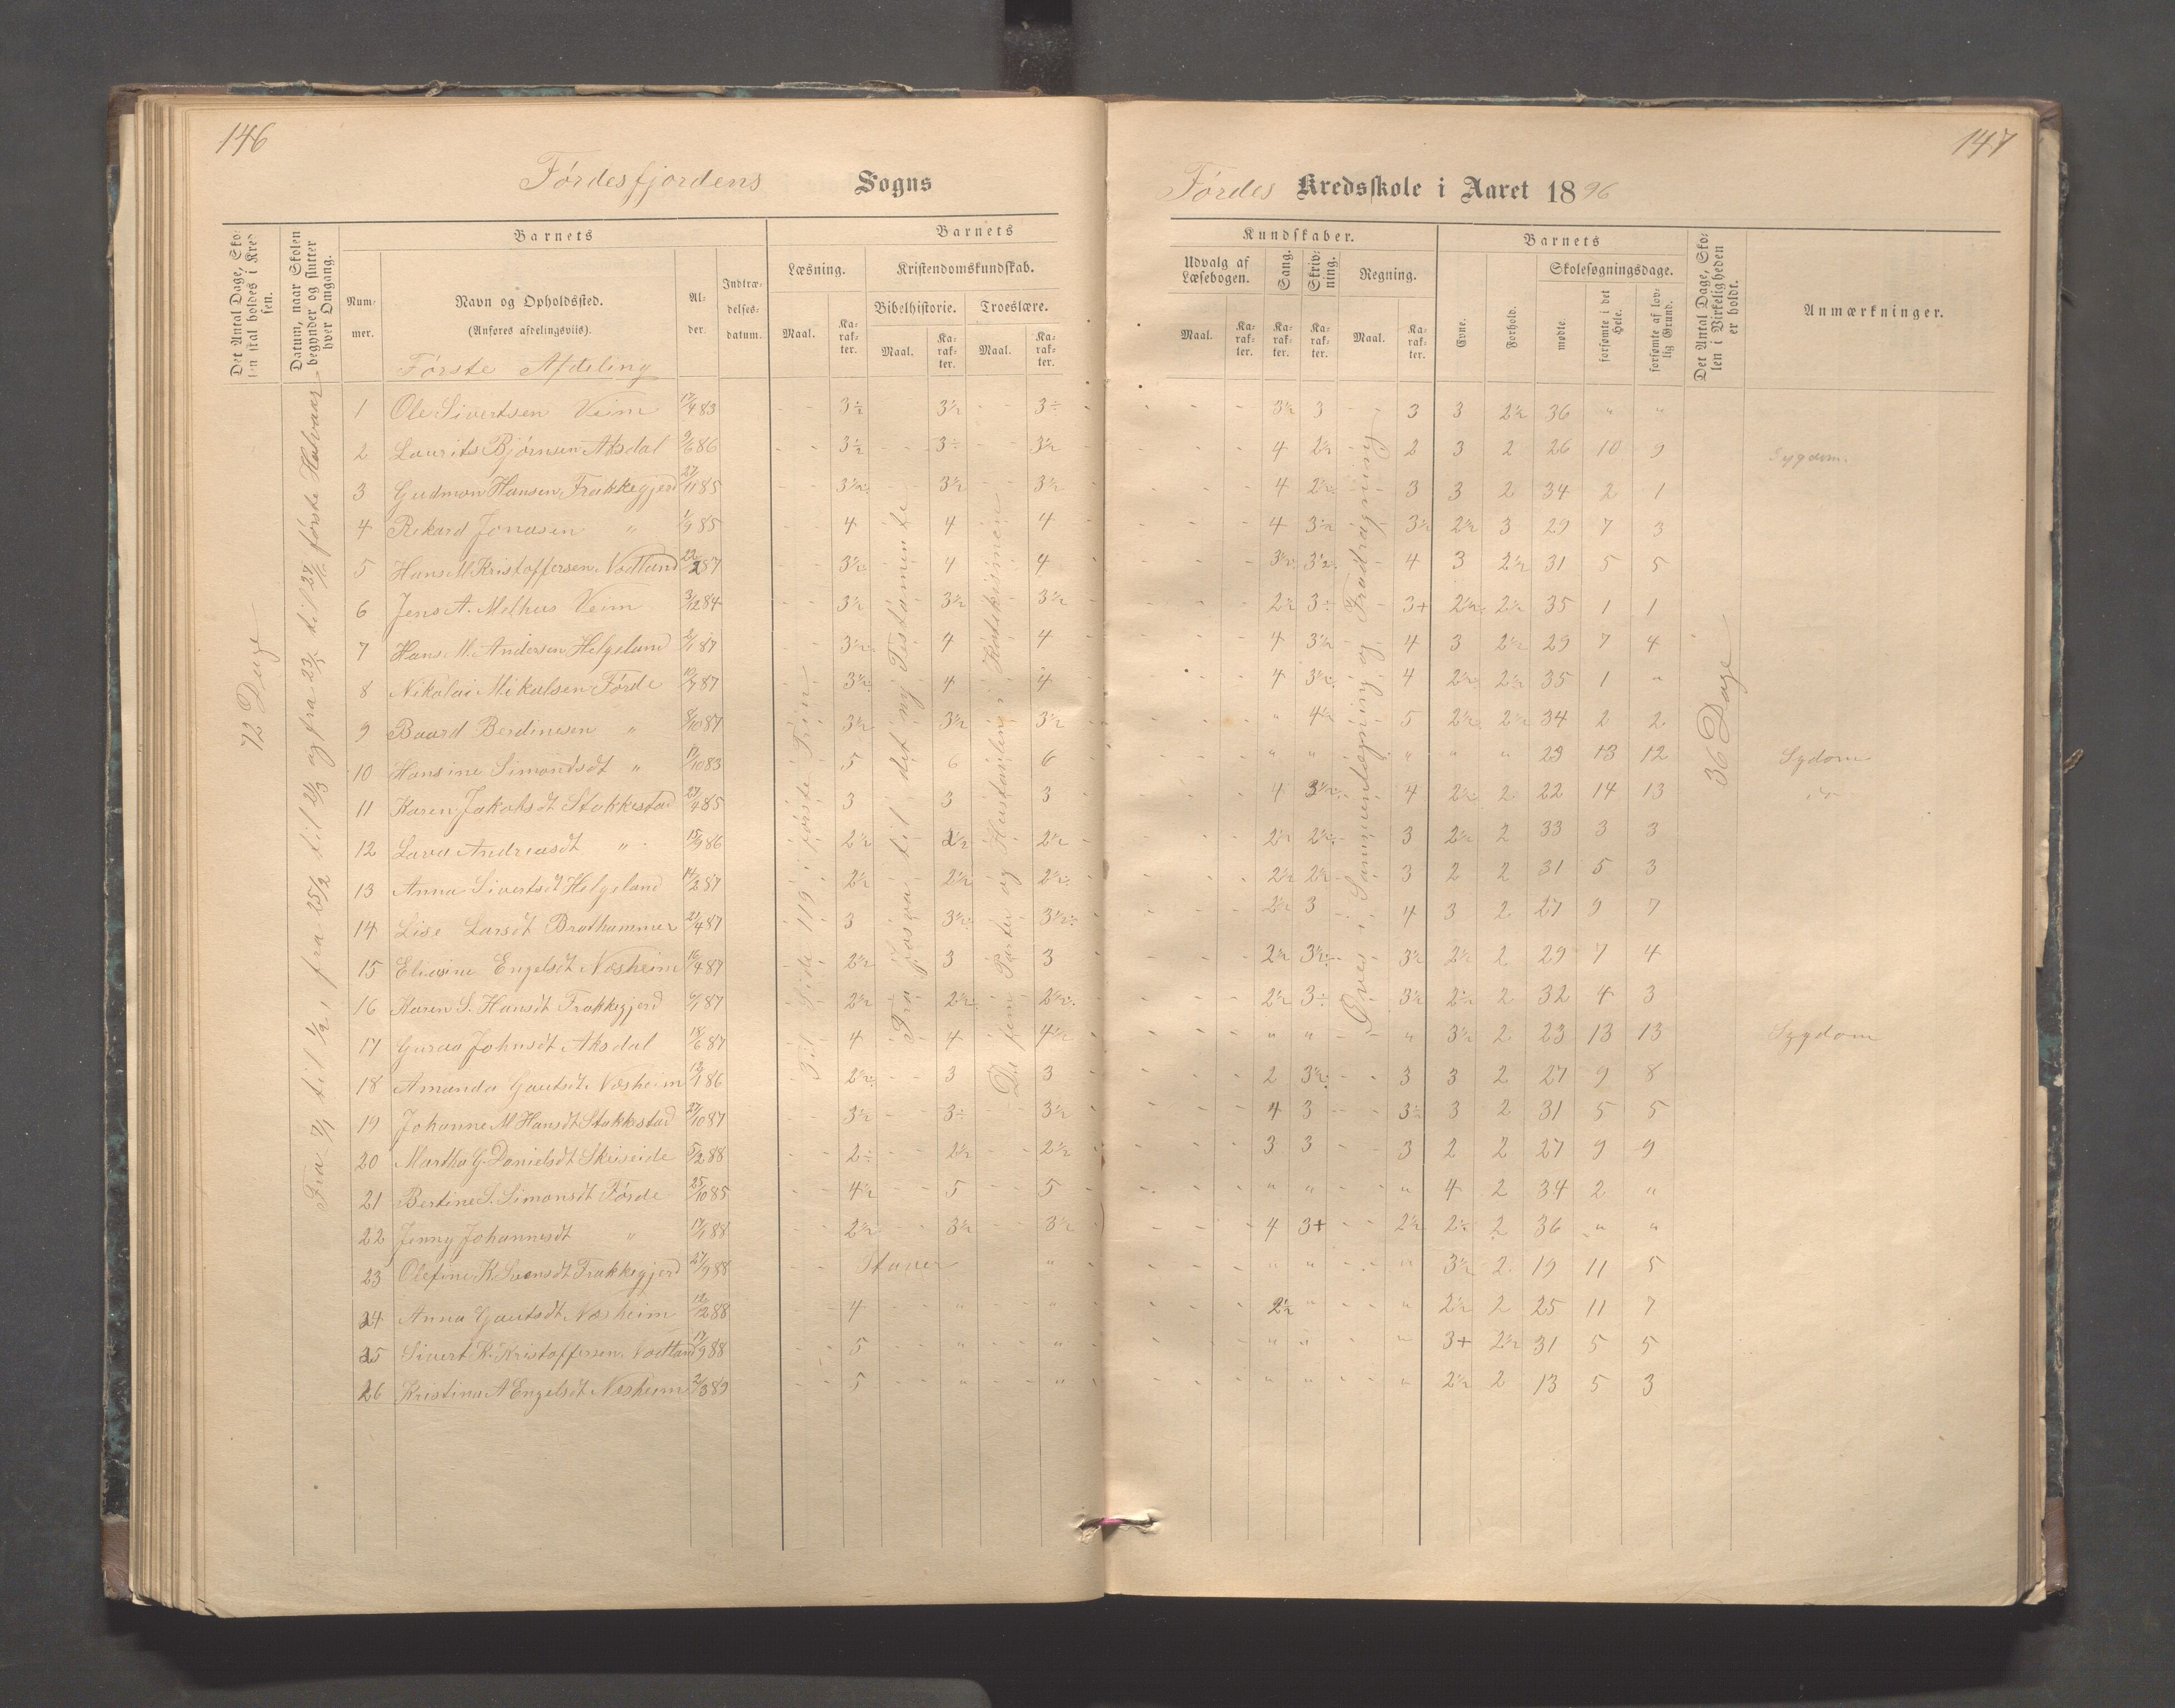 146
Førdesfjordens Sogns
Det Antal Dage, Skolen skal holdes i Kredsen.
Datum, naar Skolen begynder og slutter hver Omgang.
Barnets
Nummer.
Navn og Opholdssted.
(Anføres afdelingsviis).
Alder.
Indtrædelsesdatum.
Barnets
Læsning.
Kristendomskundskab.
Bibelhistorie.
Troeslære.
Maal.
Karakter.
Maal.
Karakter.
Maal.
Karakter.
Første Afdeling
72 Dage
Fra 7/1 til 1/2, fra 25/2 til 2/3 og fra 23/5 til 27/6 første Halvaar
Til Side 119 i første Trin
Fra Josva til det ny Testamente
De fem Parter og Hustavlen i Katekismen
1 Ole Sivertsen Veim 12/4 83 3÷ 3½ 3÷
2 Laurits Bjørnsen Aksdal 9/6 86 3½ 3÷ 3½
3 Gudmon Hansen Frakkegjerd 27/11 85 3½ 3½ 3½
4 Rikard Jonasen " 1/9 85 4 4 4
5 Hans M. Kristoffersen Vodland 22/2 87 3½ 4 4
6 Jens A. Melhus Veim 3/12 84 3½ 3½ 3½
7 Hans M. Andersen Helgeland 2/1 87 3½ 4 4
8 Nikolai Mikalsen Førde 10/7 87 3½ 4 4
9 Baard Berdinesen " 8/10 87 3½ 3½ 3½
10 Hansine Simondsdt " 17/10 83 5 6 6
11 Karen Jakobsdt Stakkestad 27/4 85 3 3 3
12 Lava Andreasdt " 15/9 86 2½ 2½ 2½
13 Anna Sivertsdt Helgeland 14/2 87 2½ 2½ 2½
14 Lise Larsdt Brathammer 21/4 87 3 3½ 3½
15 Eliasine Engelsdt Næsheim 16/4 87 2½ 3 3
16 Karen S. Hansdt Frakkegjerd 6/1 87 2½ 2½ 2½
17 Guraa Johnsdt Aksdal 18/6 87 4 4 4½
18 Amanda Gautsdt Næsheim 12/1 86 2½ 3 3
19 Johanne M Hansdt Stakkestad 27/10 87 3½ 3÷ 3½
20 Martha G. Danielsdt Skeiseide 5/2 88 2÷ 2½ 2½
21 Bertine S. Simonsdt Førde 25/10 85 4½ 5 5
22 Jenny Johannesdt " 17/1 88 2½ 3½ 3½
23 Olefine K. Svensdt Frakkegjerd 27/9 88 Staver "
24 Anna Gautsdt Næsheim 12/2 88 4 " "
25 Sivert K. Kristoffersen Vodland 17/9 88 5 " "
26 Kristina A Engelsdt Næsheim 2/3 89 5 " "
147
Førdes Kredsskole i Aaret 1896
Kundskaber.
Udvalg af Læsebogen.
Sang.
Skrivning.
Regning.
Maal.
Karakter.
Karakter.
Karakter.
Maal.
Karakter.
Barnets
Evne.
Forhold.
Skolesøgningsdage.
mødte.
forsømte i det Hele.
forsømte af lovlig Grund.
Det Antal Dage, Skolen i Virkeligheden er holdt.
Anmærkninger.
Øves i Sammenlægning og Fradragning
36 Dage
3½ 3 3 3 2½ 36 " "
4 2½ 2 3 2 26 10 9 Sygdom
4 2½ 3 3 2 34 2 1
4 3½ 3½ 2½ 3 29 7 3
3½ 3½ 4 3 2½ 31 5 5
2½ 3÷ 3+ 2½ 2½ 35 1 1
4 3½ 4 3 2½ 29 7 4
4 3½ 4 2½ 2½ 35 1 "
" 4½ 5 2½ 2½ 34 2 2
" " " " " 23 13 12 Sydom
4 3½ 4 2½ 2 22 14 13 do
2½ 2½ 3 2½ 2 33 3 3
2½ 2½ 3 2 2 31 5 3
2½ 3 4 3 2 27 9 7
2½ 3½ 3½ 2½ 2 29 7 4
2½ 3÷ 3½ 2½ 2 32 4 3
" " " 3½ 2 23 13 13 Sygdom
2 3½ 3 3 2 27 9 8
4 3 3½ 3 2 31 5 5
3 3 3 2 2 27 9 9
" " " 4 2 34 2 "
4 3+ 2½ 2½ 2 36 " "
" " " 3½ 2 19 11 5
2½ " " 2½ 2 25 11 7
" " " 3+ 2½ 31 5 5
" " " 2½ 2 13 5 3